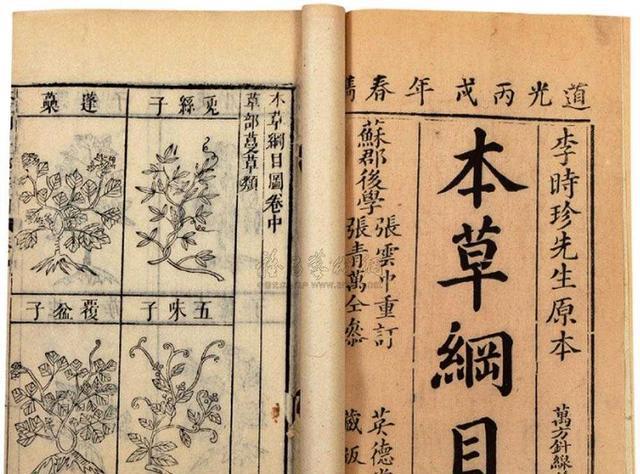 道光丙戌年春
李時珍先生原本
本草綱目
萬方針線
蘇郡後學
張雲中重訂
張青萬仝參
英德
藏板
本草綱目圖卷中
草部蔓草類
兎絲子
蓬蘽
五味子
覆盆子